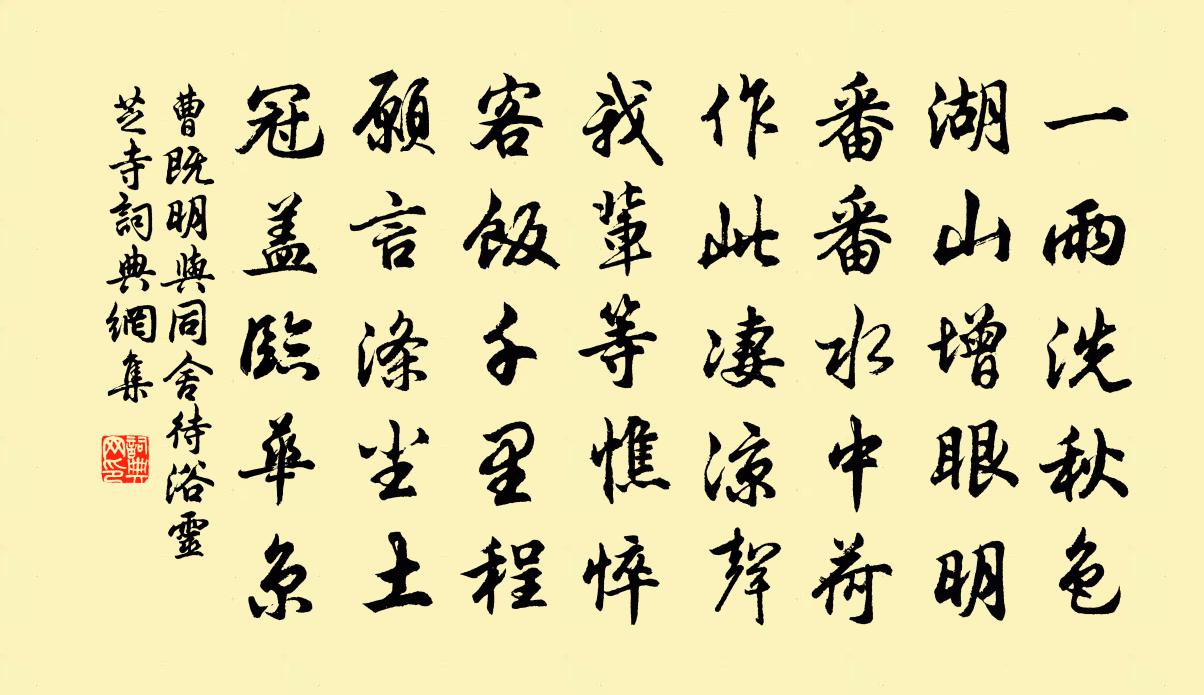 一雨洗秋色
湖山增眼明
番番水中荷
作此凄凉聲
我輩等憔悴
客飯千里程
願言滌尘土
冠盖臨華京
曹既明與同舍待浴靈
芝寺詞典網集
詞典
网印